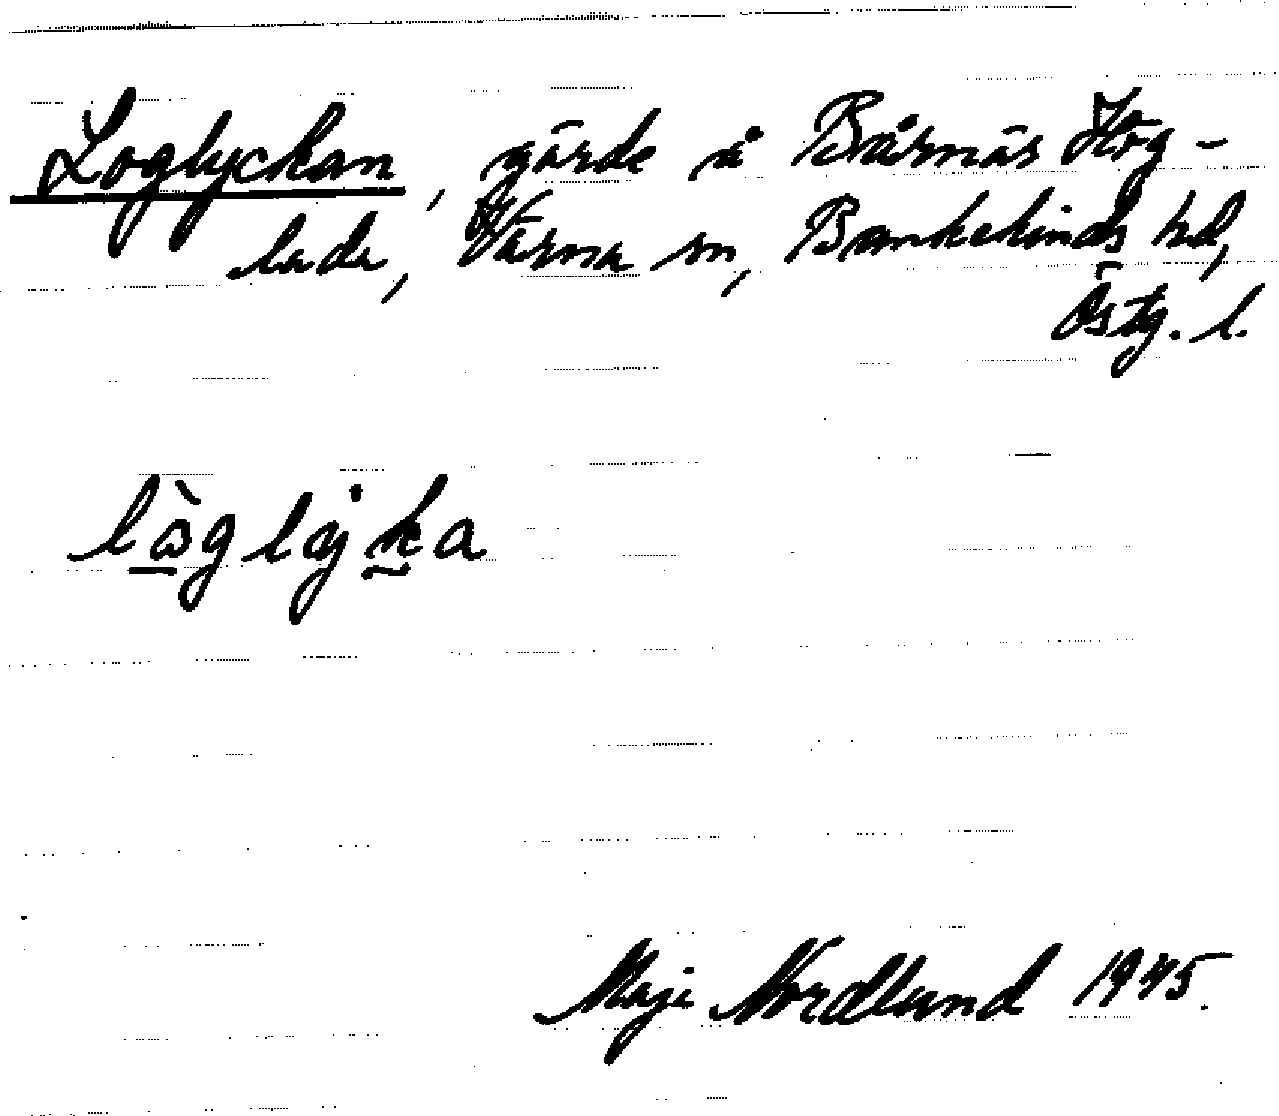 Loglyckan, gärde å Bårnäs Hög-
lada, Värna sn, Bankekinds hd,
Östg. l.
lòglyka
Maji Nordlund 1945.